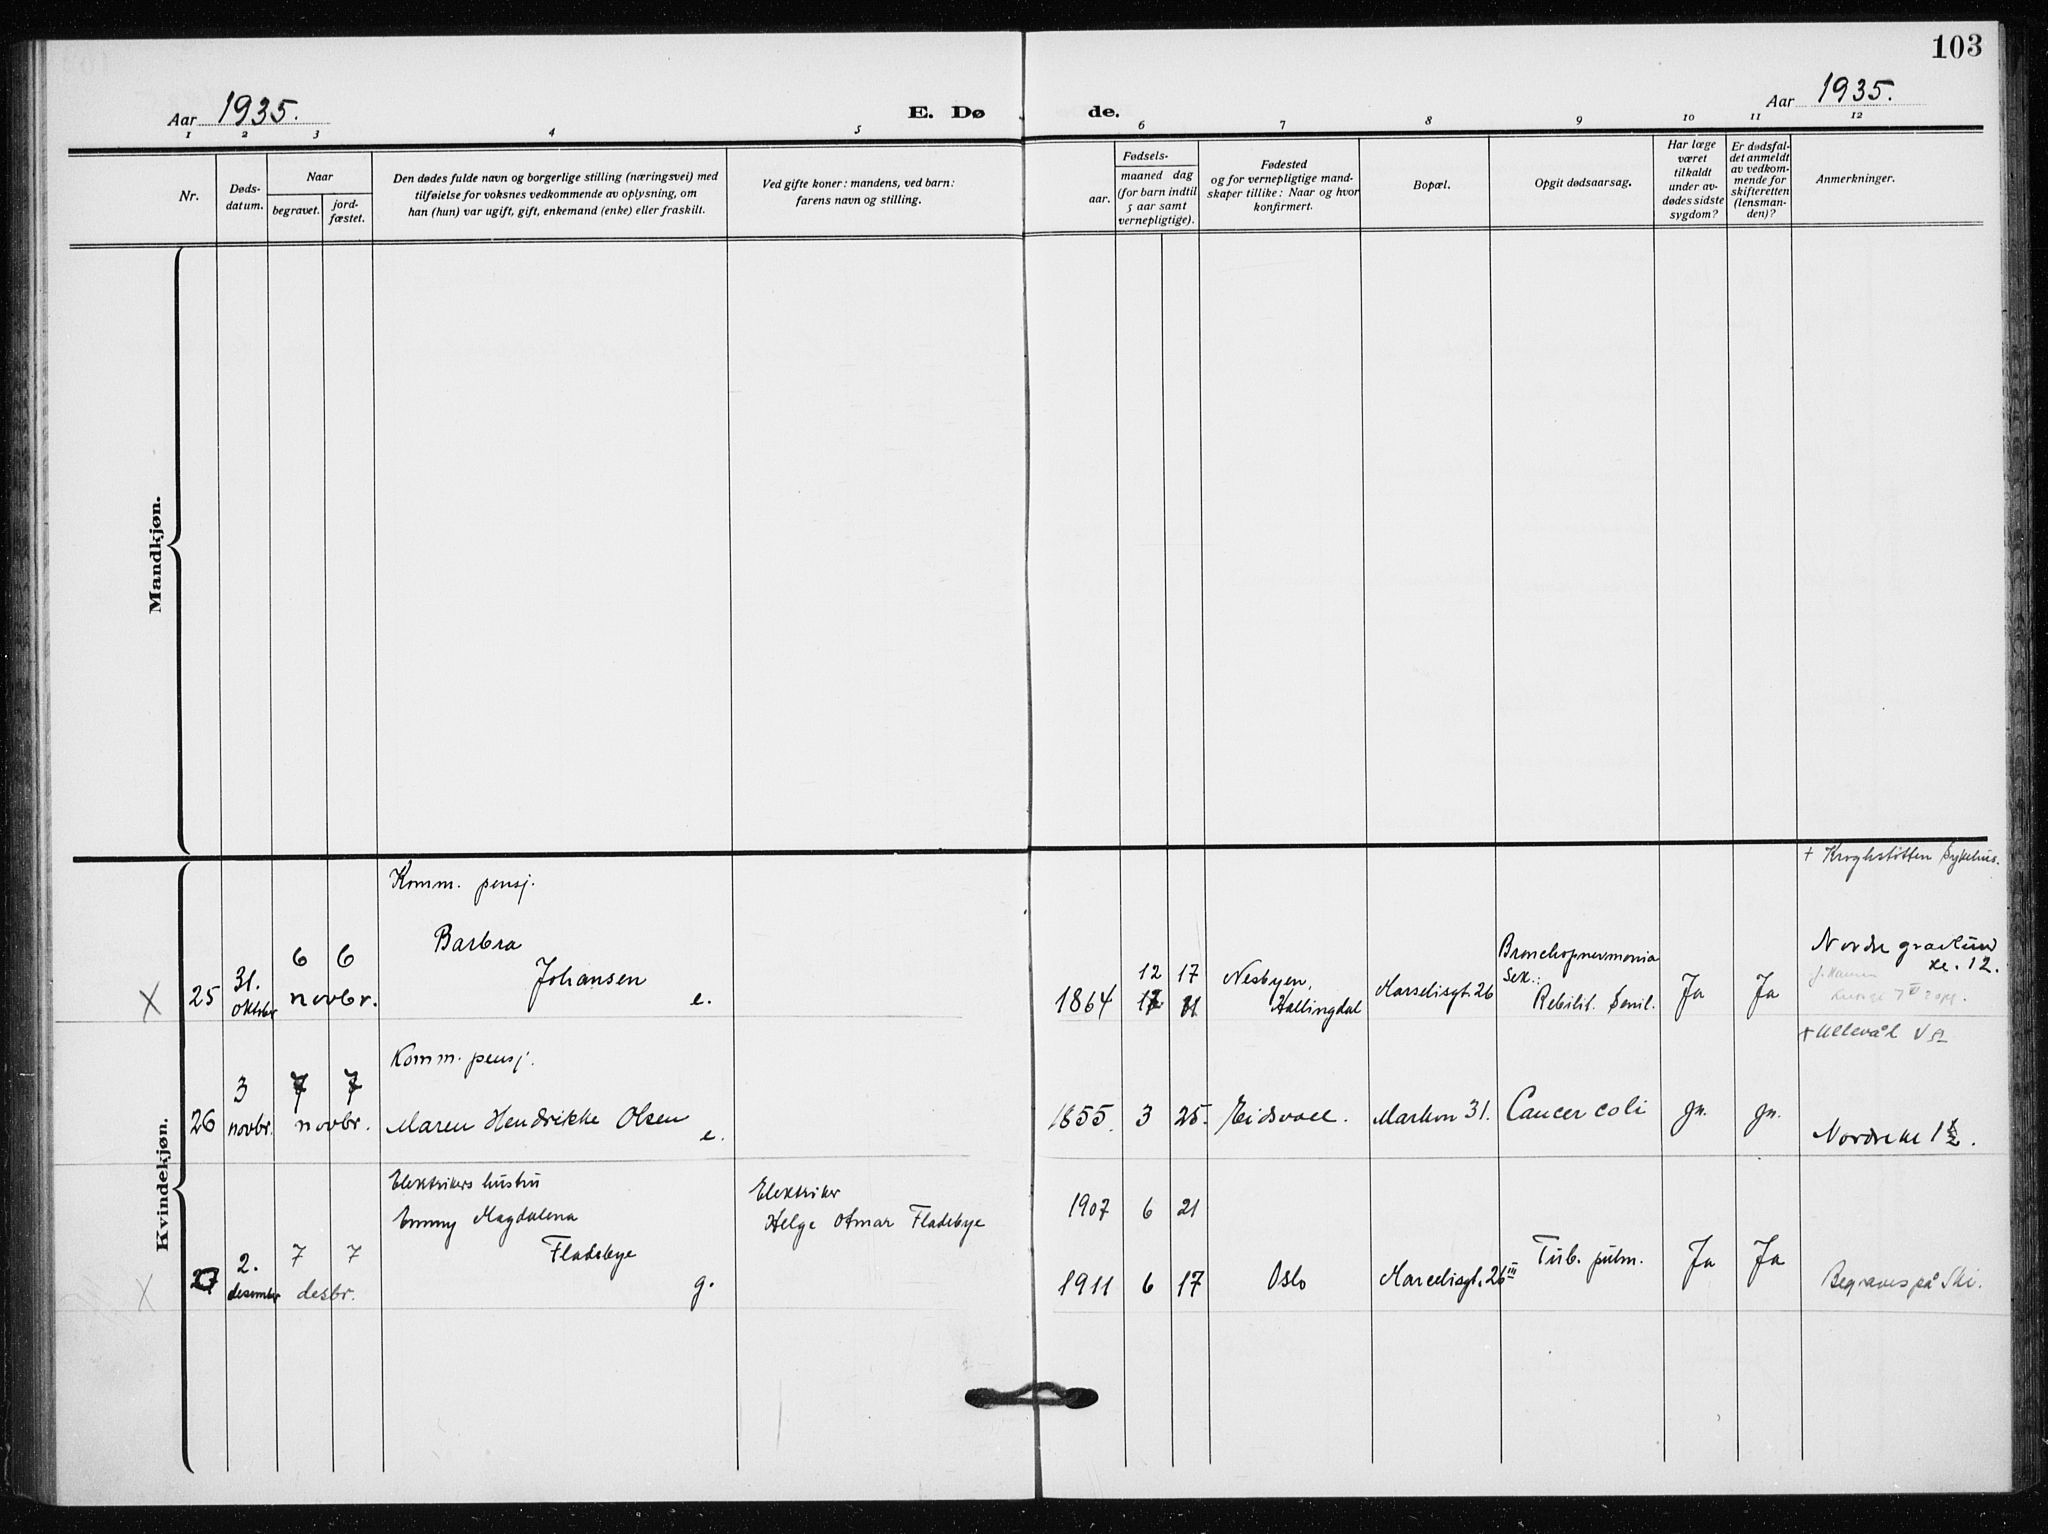 103
Aar 1935.
E. Dø de.
Aar 1935.
1 2 3 4 5 6 7 8 9 10 11 12
Nr.
Døds-
datum.
Naar
begravet.
jord-
fæstet.
Den dødes fulde navn og borgerlige stilling (næringsvei) med
tilføielse for voksnes vedkommende av oplysning, om
han (hun) var ugift, gift, enkemand (enke) eller fraskilt.
Ved gifte koner: mandens, ved barn:
farens navn og stilling.
Fødsels-
aar.
maaned dag
(for barn indtil
5 aar samt
vernepligtige).
Fødested
og for vernepligtige mand-
skaper tillike: Naar og hvor
konfirmert.
Bopæl.
Opgit dødsaarsag.
Har læge
været
tilkaldt
under av-
dødes sidste
sygdom?
Er dødsfal-
det anmeldt
av vedkom-
mende for
skifteretten
(lensman-
den)?
Anmerkninger.
Mandkjøn.
Kvindekjøn.
+ Kroghstøtten Sykehus.
Komm. pensj.
Barbra
Johansen e.
X 25 31. oktbr 6 6 novbr.
12 17
1864
Nesbyen,
Hallingdal
Marselisgt. 26
Bronchopnevmonia
Sek.:
Rebilit. Senil.
Ja Ja
Nordre gravlund
kl. 12.
+ Ullevål V
Komm. pensj.
26 3 novbr. 7 7 novbr. Maren Hendrikke Olsen e.
1855. 3 25. Eidsvoll. Markvn 31. Cancer coli Ja. Ja.
Nordre kl 12.
Elektrikers hustru
Emmy Magdalena
Fladebye g.
Elektriker
Helge Otmar Fladebye
1907 6 21
X 27 2. desember 7 7 desbr.
1911 6 17 Oslo Marcelisgt. 26 III Tub. pulm. Ja Ja Begraves på Ski.